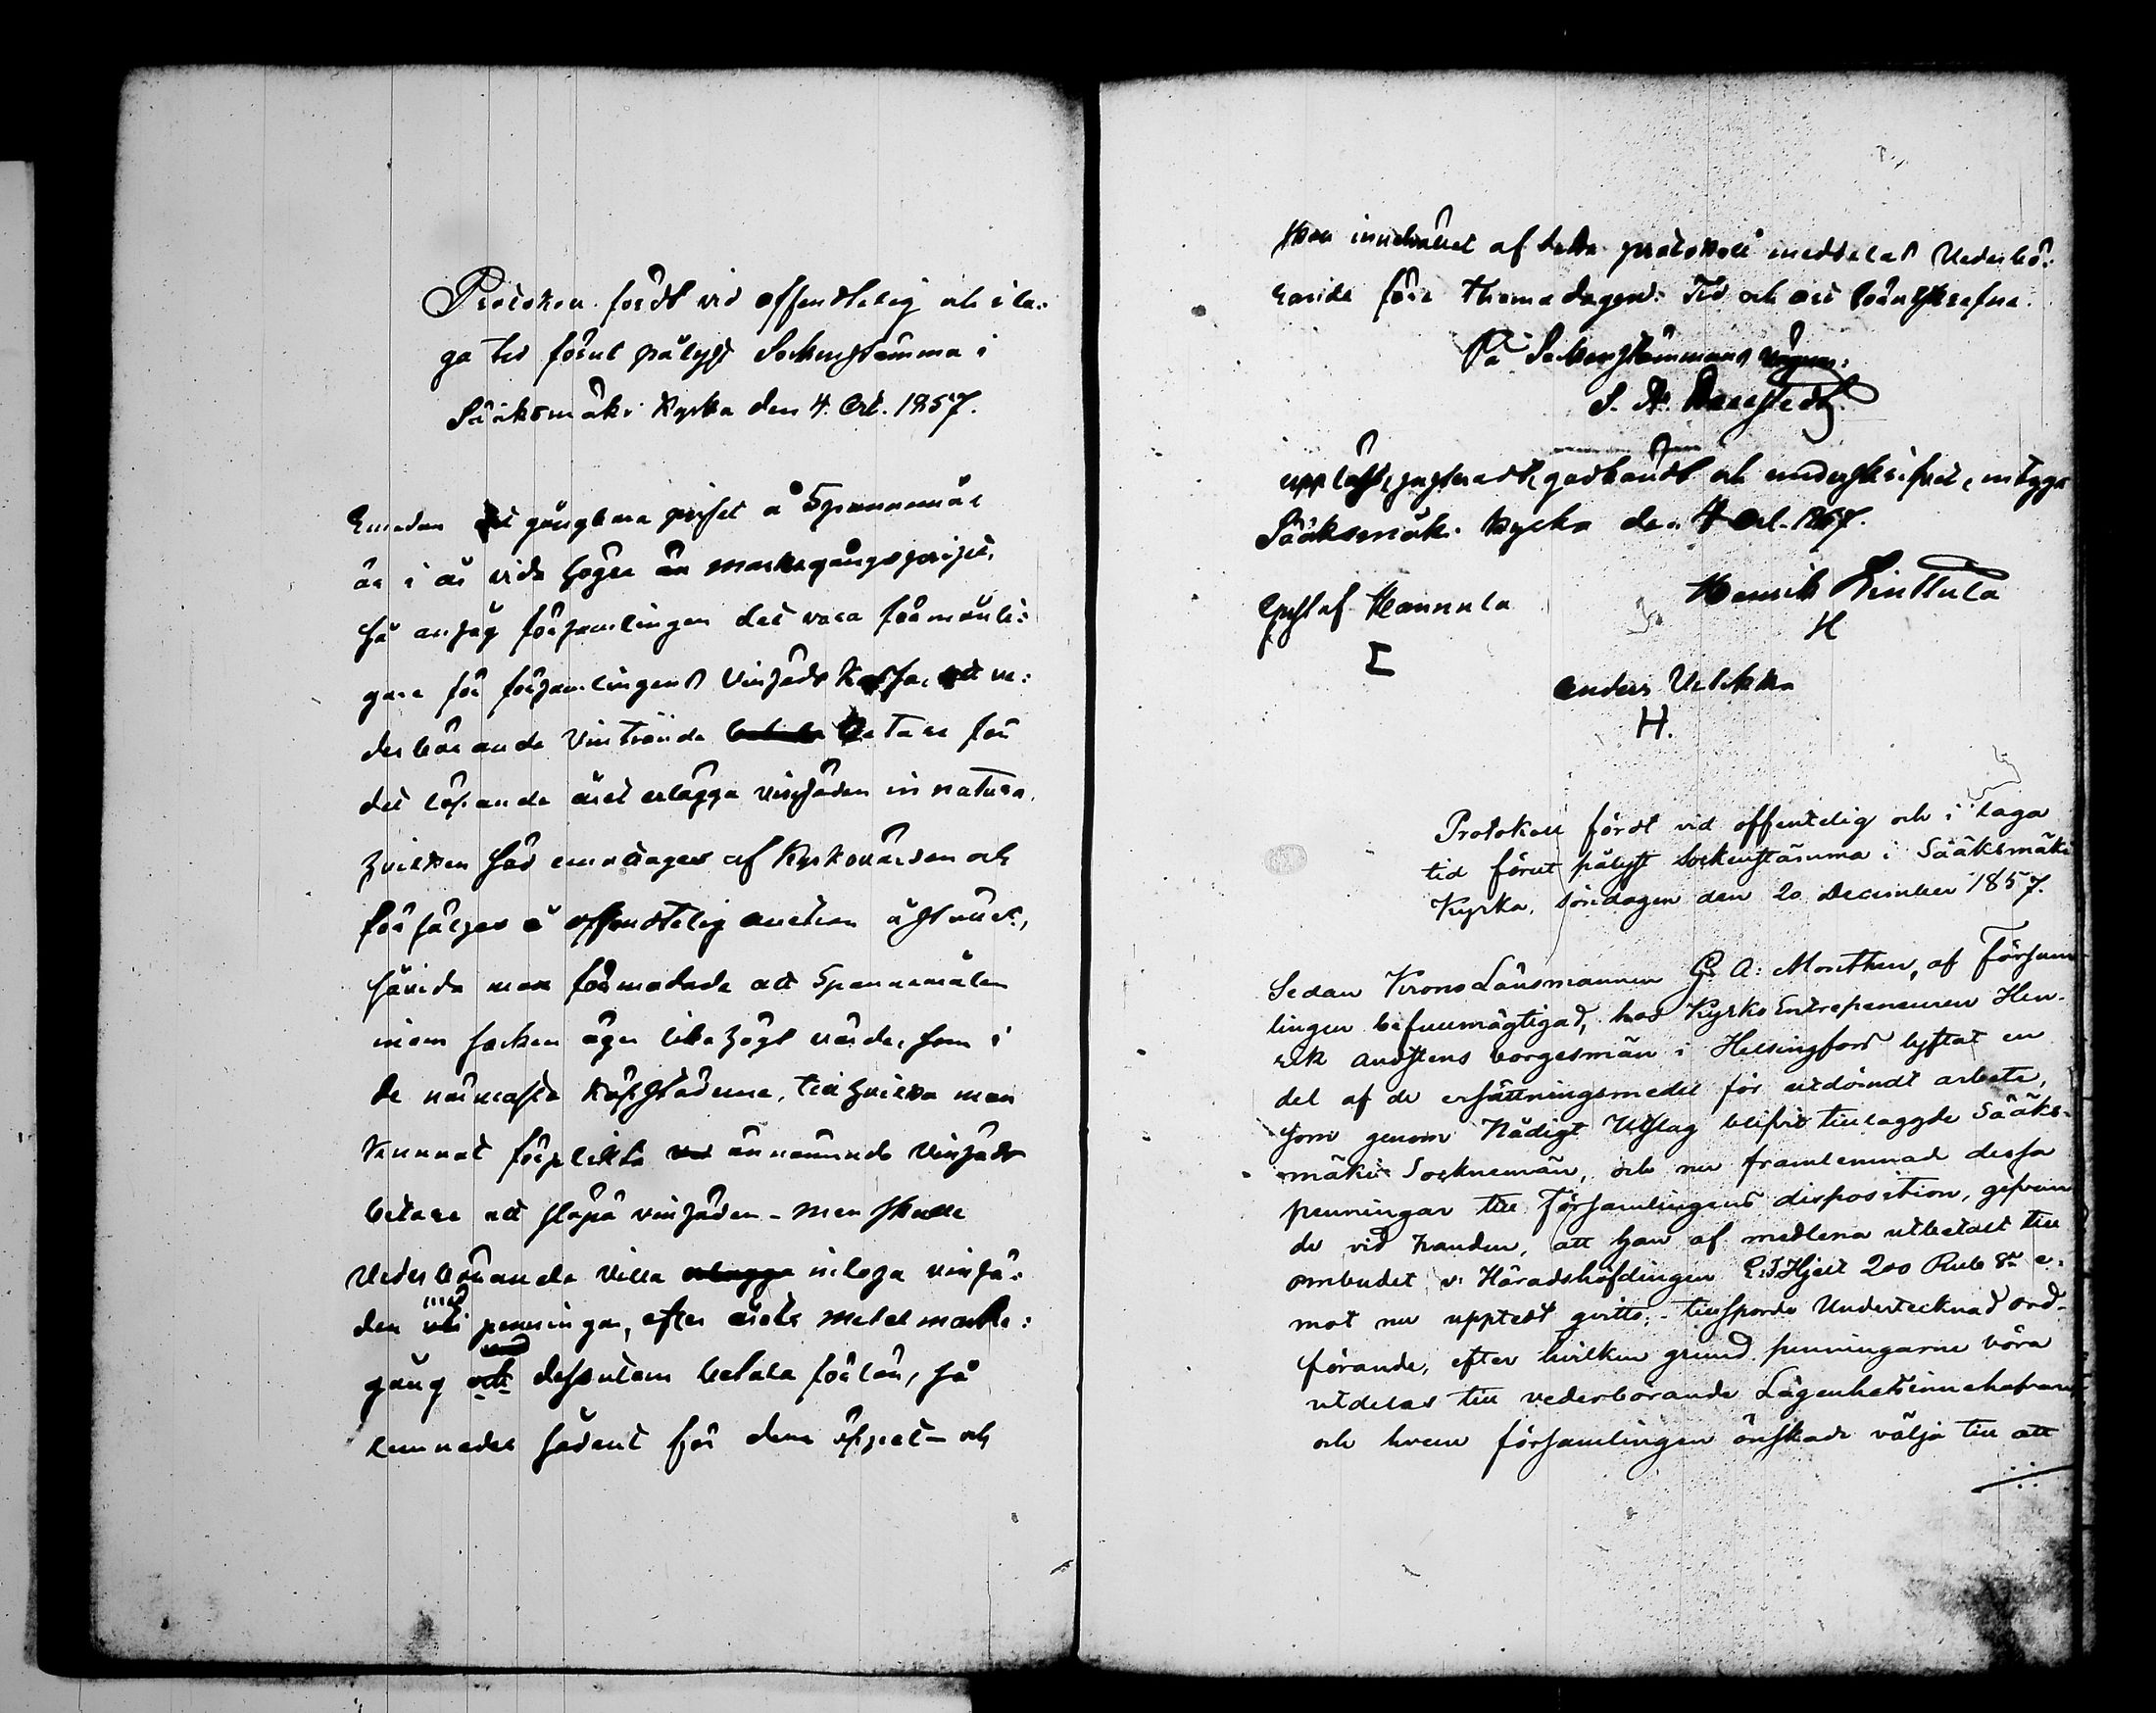 Protokoll fördt vid offentelig och i la:
ga tid förut pålyst Sockenstämma i
Sääksmäki Kyrka den 4. Oct. 1857.
Emedan det gångbara priset å Spannemål
är i år vida högre än markegångspriset,
så ansåg församlingen det vara förmånli:
gare för församlingens Vinsäds Kassa, att ve:
derbörande Vintionde betare för
det löpande året erlägga vinsäden in natura,
hvilken säd emottages af Kyrkovärden och
försäljes å offendtelig auction
såvida man förmodade att Spannemålen
inom socken äger lika högt värde, som i
de närmaste Köpstäderne, till hvilka man
kunnat förplikta ännämnde Vinsäds
betare att släpa vinsäden - men skulle
Vederbörande villa inlösa vinsä:
den med penningar, efter årets medel marke:
gång och dessutom betala förlön, så
lemnades sådant för dem öppet - och
skall innehållet af detta protokoll meddelas Vederbö:
rande före Thomædagen. Tid och ort förutskrefne.
På Sockenstämmans vägnar:
uppläst, justeradt, godkändt och underskrifvet, intyga
Sääksmäki Kyrka den 4 Oct. 1857.
Gustaf Hannula
Henrik Finttula
H
Anders Uclikka
H.
Protokoll fördt vid offentelig och i laga
tid förut pålyst sockenstämma i Sääksmäki
Kyrka, söndagen den 20 December 1857.
Sedan KronoLänsmannen G. A: Monthen, af Försam-
lingen befullmägtigad, hos Kyrko Entrepeneuren Hen-
rik Andstens borgesmän i Helsingfors lyftat en
del af de ersättningsmedel för utdömdt arbete,
som genom Nådigt Utslag blifvit tillaggde Sääks-
mäki Socknemän, och nu framlemnad dessa
penningar till Församlingens disposition, gifvan
de vid handen, att han af medlena utbetalt till
ombudet v: Häradshöfdingen E. J. Hjelt 200 Rub Sr e-
mot nu uppteet qvitto; - tillsporde Undertecknad ord-
förande, efter hvilken grund penningarne böra
utdelas till vederbörande Lägenhetsinnehafvare
och hvem församlingen önskade välja till att